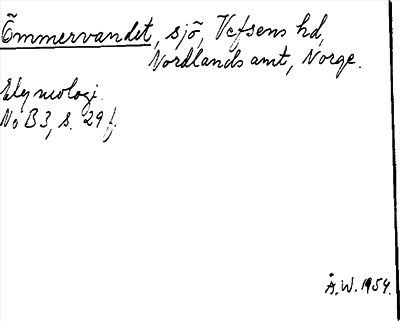 Ömmervandet, sjö, Vefsens hd,
Nordlands amt, Norge.
Etymologi.
NoB 3, s. 29 f.
Å.W. 1954.